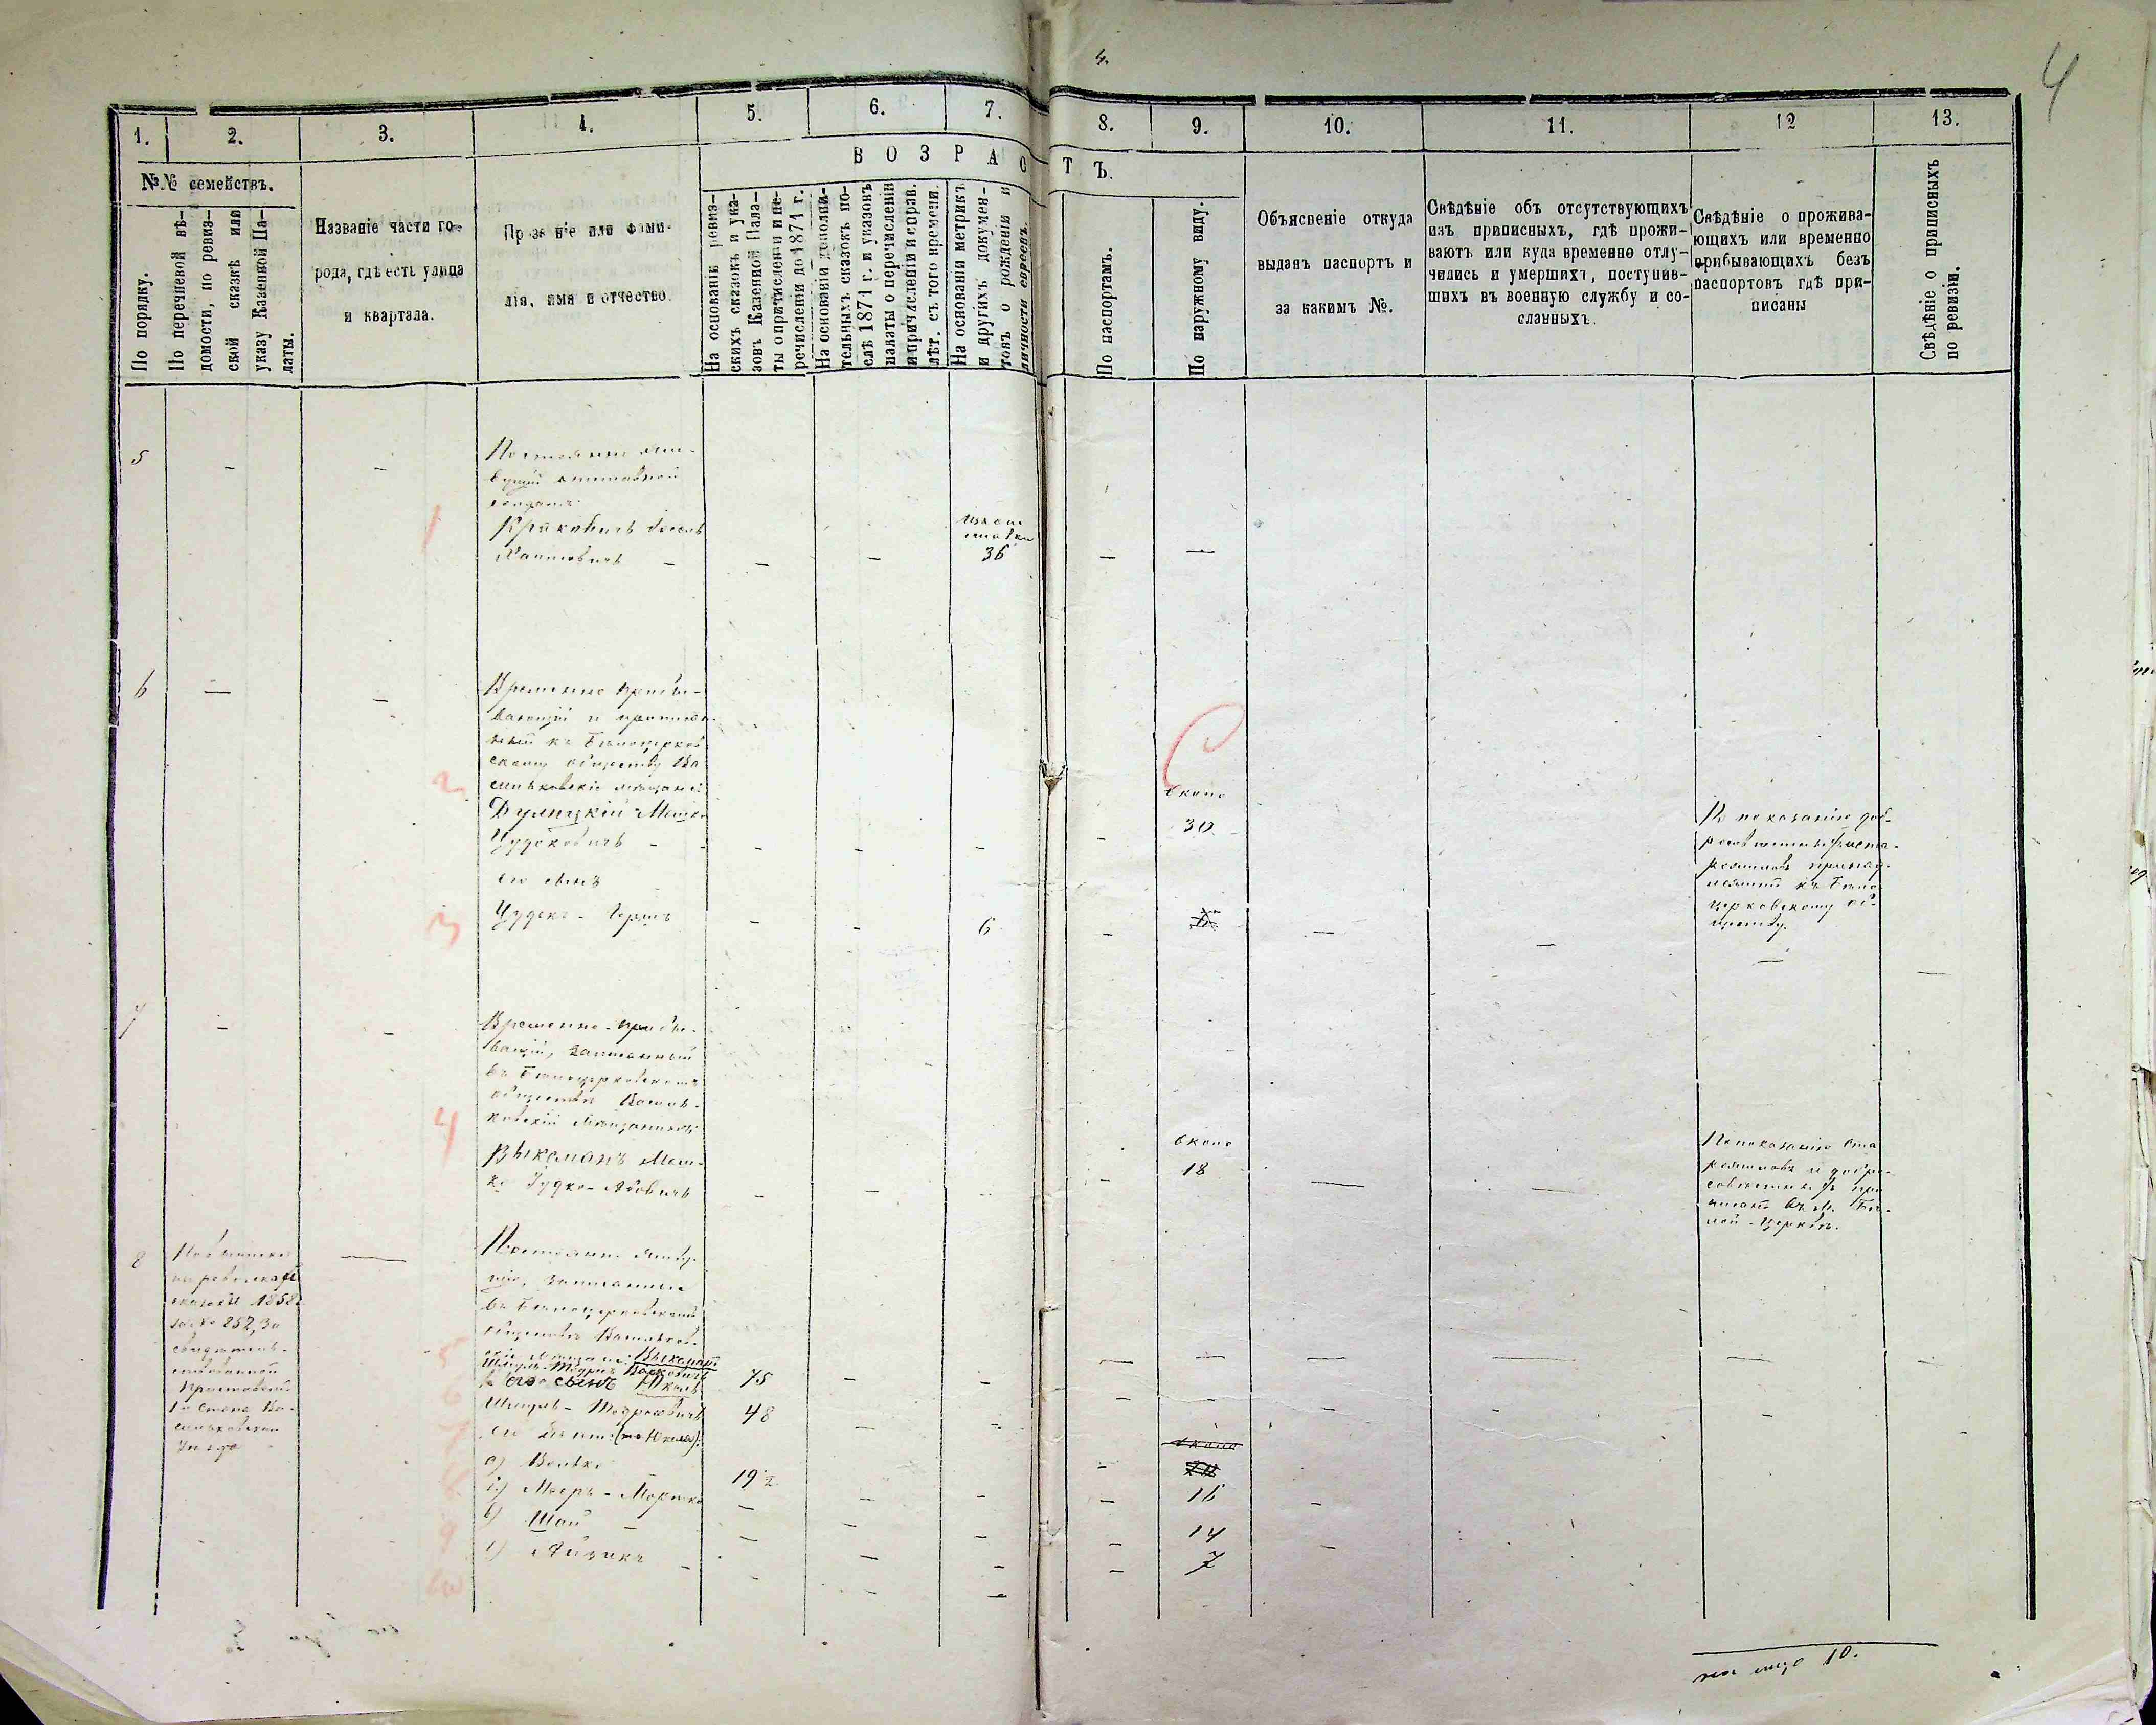 4.
4
1. 2. 3. 4. 5. 6. 7. 8. 9. 10. 11. 12 13.
ВОЗРАСТЪ.
№№ семействъ.
По порядку.
По перечневой вѣ-
домости, по ревиз-
ской сказкѣ или
указу Казенной Па-
латы.
Названіе части го-
рода, гдѣ есть улица
и квартала.
Прозваніе или фами-
лія, имя и отчество.
На основаніи ревиз-
скихъ сказокъ и ука-
зовъ Казенной Пала-
ты о причисленіи и пе-
речисленіи до 1871 г.
На основаніи дополни-
тельныхъ сказокъ по-
слѣ 1871 г. и указовъ
палаты о перечисленіи
и причисленіи и справ.
лѣт. съ того времени.
На основаніи метрикъ
и другихъ докумен-
товъ о рожденіи и
личности евреевъ.
По паспортамъ.
По наружному виду.
Объясненіе откуда
выданъ паспортъ и
за какимъ №.
Свѣдѣніе объ отсутствующихъ
изъ приписныхъ, гдѣ прожи-
ваютъ или куда временно отлу-
чились и умершихъ, поступив-
шихъ въ военную службу и со-
сланныхъ.
Свѣдѣніе о прожива-
ющихъ или временно
прибывающихъ безъ
паспортовъ гдѣ при-
писаны
Свѣдѣніе о приписныхъ
по ревизіи.
5
Постоянно жи-
вущій отставной
солдатъ
1
Хаимовичъ
36
6
Временно прибы-
вающій и приписан-
ный къ Бѣлоцерков
скому обществу Ва
сильковскіе мѣщане:
2
Дулицкій Мошко
Іудковичъ
около
30
По показанію доб-
росовѣстныхъ и ста-
рожиловъ принад-
лежитъ къ Бѣло-
церковскому об-
ществу.
его сынъ
3
6
7
Временно-прибы-
вающій, записанный
въ Бѣлоцерковскомъ
обществѣ Василь-
ковскій мѣщанинъ
4
Выксманъ Мош-
ко Іудко-Абовичъ
около
18
По показанію ста
рожиловъ и добро-
совѣстныхъ при
писанъ въ м. Бѣ-
лой-Церкви.
8
по ревизской
сказкѣ 1858
за № 252, За
свидѣтель-
ствованной
Приставомъ
1го Стана Ва-
сильковскаго
Уѣзда
Постоянно живу-
щіе, записанные
въ Бѣлоцерковскомъ
обществѣ Васильков-
скіе мѣщане: Выксманъ
5
75
6
его сынъ
48
7
его дѣти:
а) Волько
19½
8
б) Мееръ-Мортко
16
9
в) Шай
14
10
г) Айзикъ
7
на лицо 10.